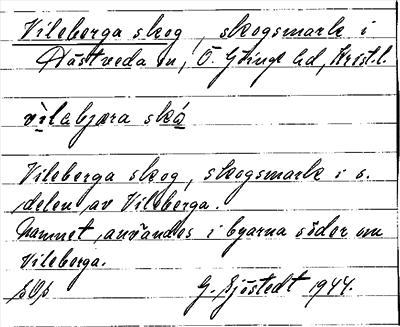 Vileberga skog, skogsmark i
Hästveda sn, Ö. Göinge hd, Krist.l.
vìlabjæra skó
Vileberga skog, skogsmark i s.
delen av Vileberga.
Namnet användes i byarna söder om
Vileberga.
G. Sjöstedt 1944.